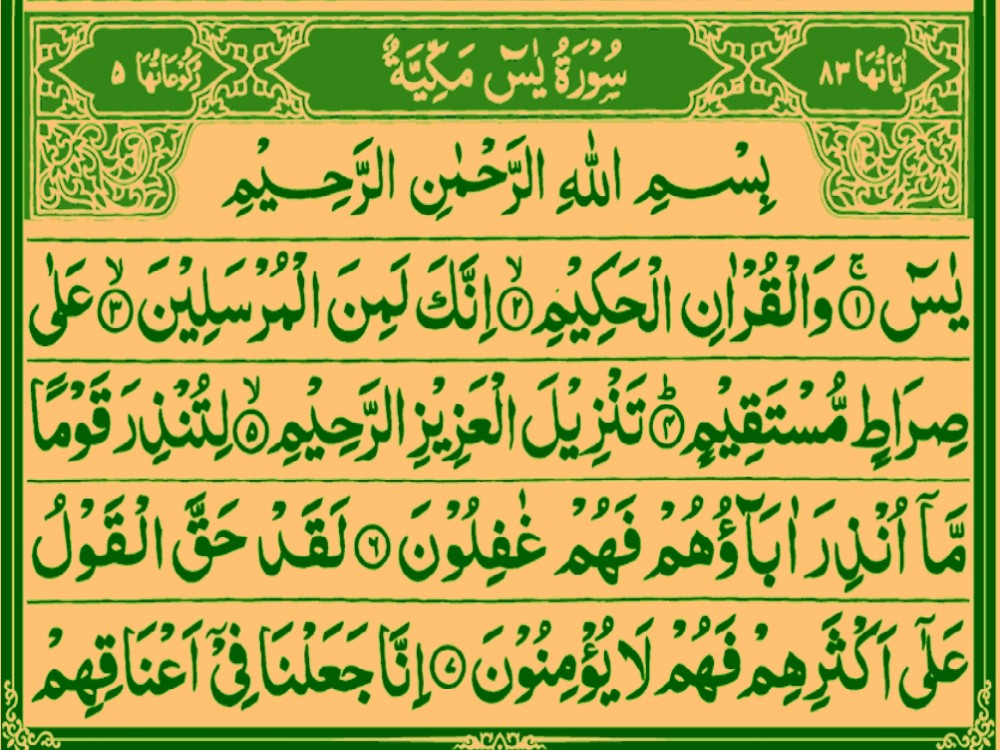 اٰيَاتُهَا ٨٣ سُوْرَةُ يٰسٓ مَكِّيَّةٌ رُكُوْعَاتُهَا ٥
بِسْمِ اللّٰهِ الرَّحْمٰنِ الرَّحِيْمِ
يٰسٓ ۚ﴿۱﴾ وَالْقُرْاٰنِ الْحَكِيْمِ ۙ﴿۲﴾ اِنَّكَ لَمِنَ الْمُرْسَلِيْنَ ۙ﴿۳﴾ عَلٰى
صِرَاطٍ مُّسْتَقِيْمٍ ؕ﴿۴﴾ تَنْزِيْلَ الْعَزِيْزِ الرَّحِيْمِ ۙ﴿۵﴾ لِتُنْذِرَ قَوْمًا
مَّاۤ اُنْذِرَ اٰبَآؤُهُمْ فَهُمْ غٰفِلُوْنَ ﴿۶﴾ لَقَدْ حَقَّ الْقَوْلُ
عَلٰۤى اَكْثَرِهِمْ فَهُمْ لَا يُؤْمِنُوْنَ ﴿۷﴾ اِنَّا جَعَلْنَا فِيْۤ اَعْنَاقِهِمْ